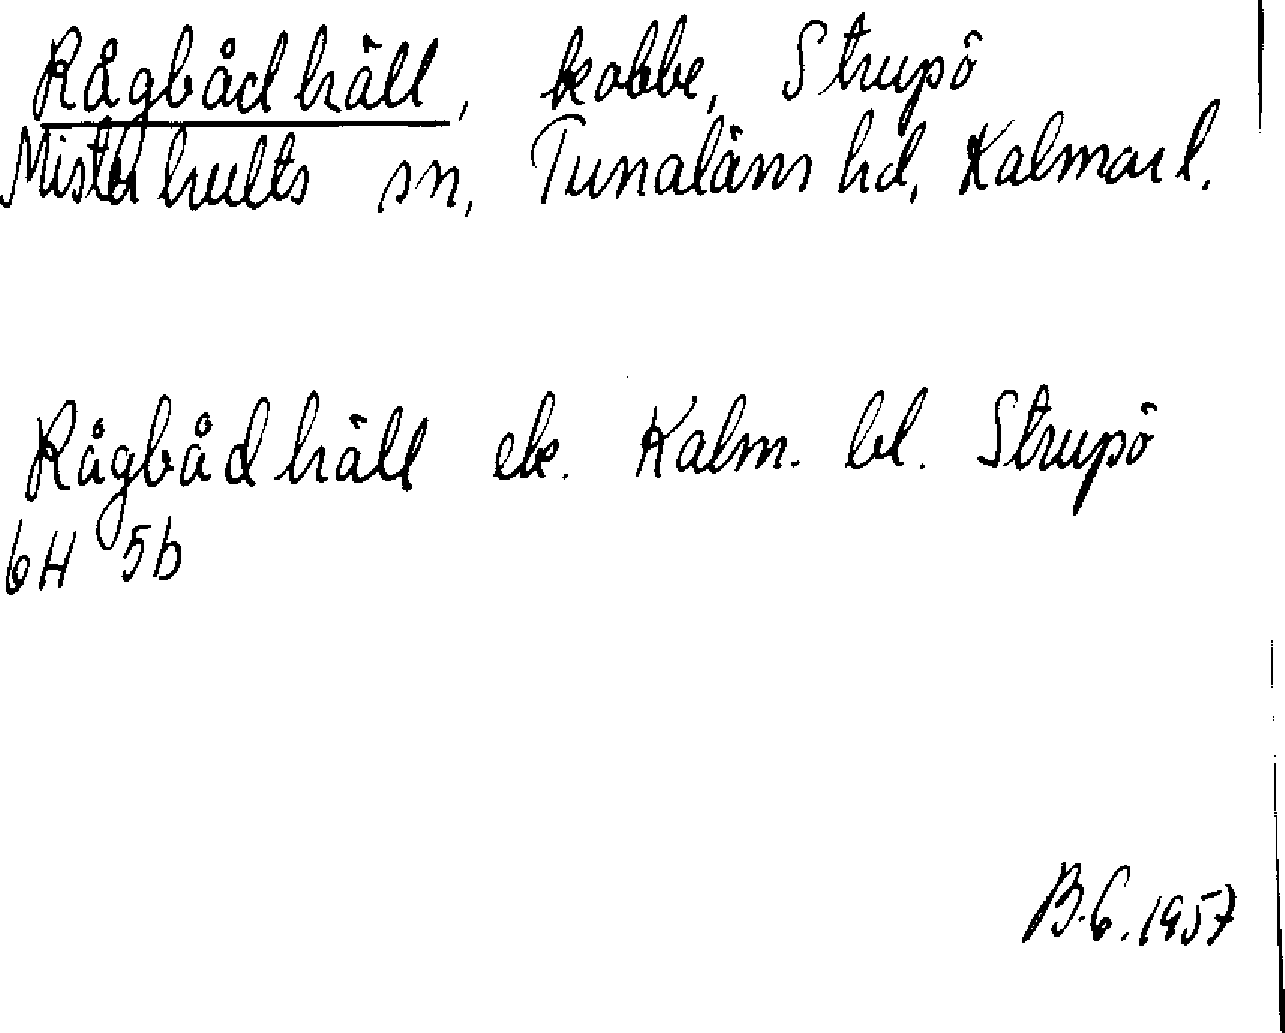 Rågbådhäll, kobbe, Strupö
Misterhults sn, Tunaläns hd, Kalmar l.
Rågbådhäll ek. Kalm. bl. Strupö
6H 5b
B.G. 1957